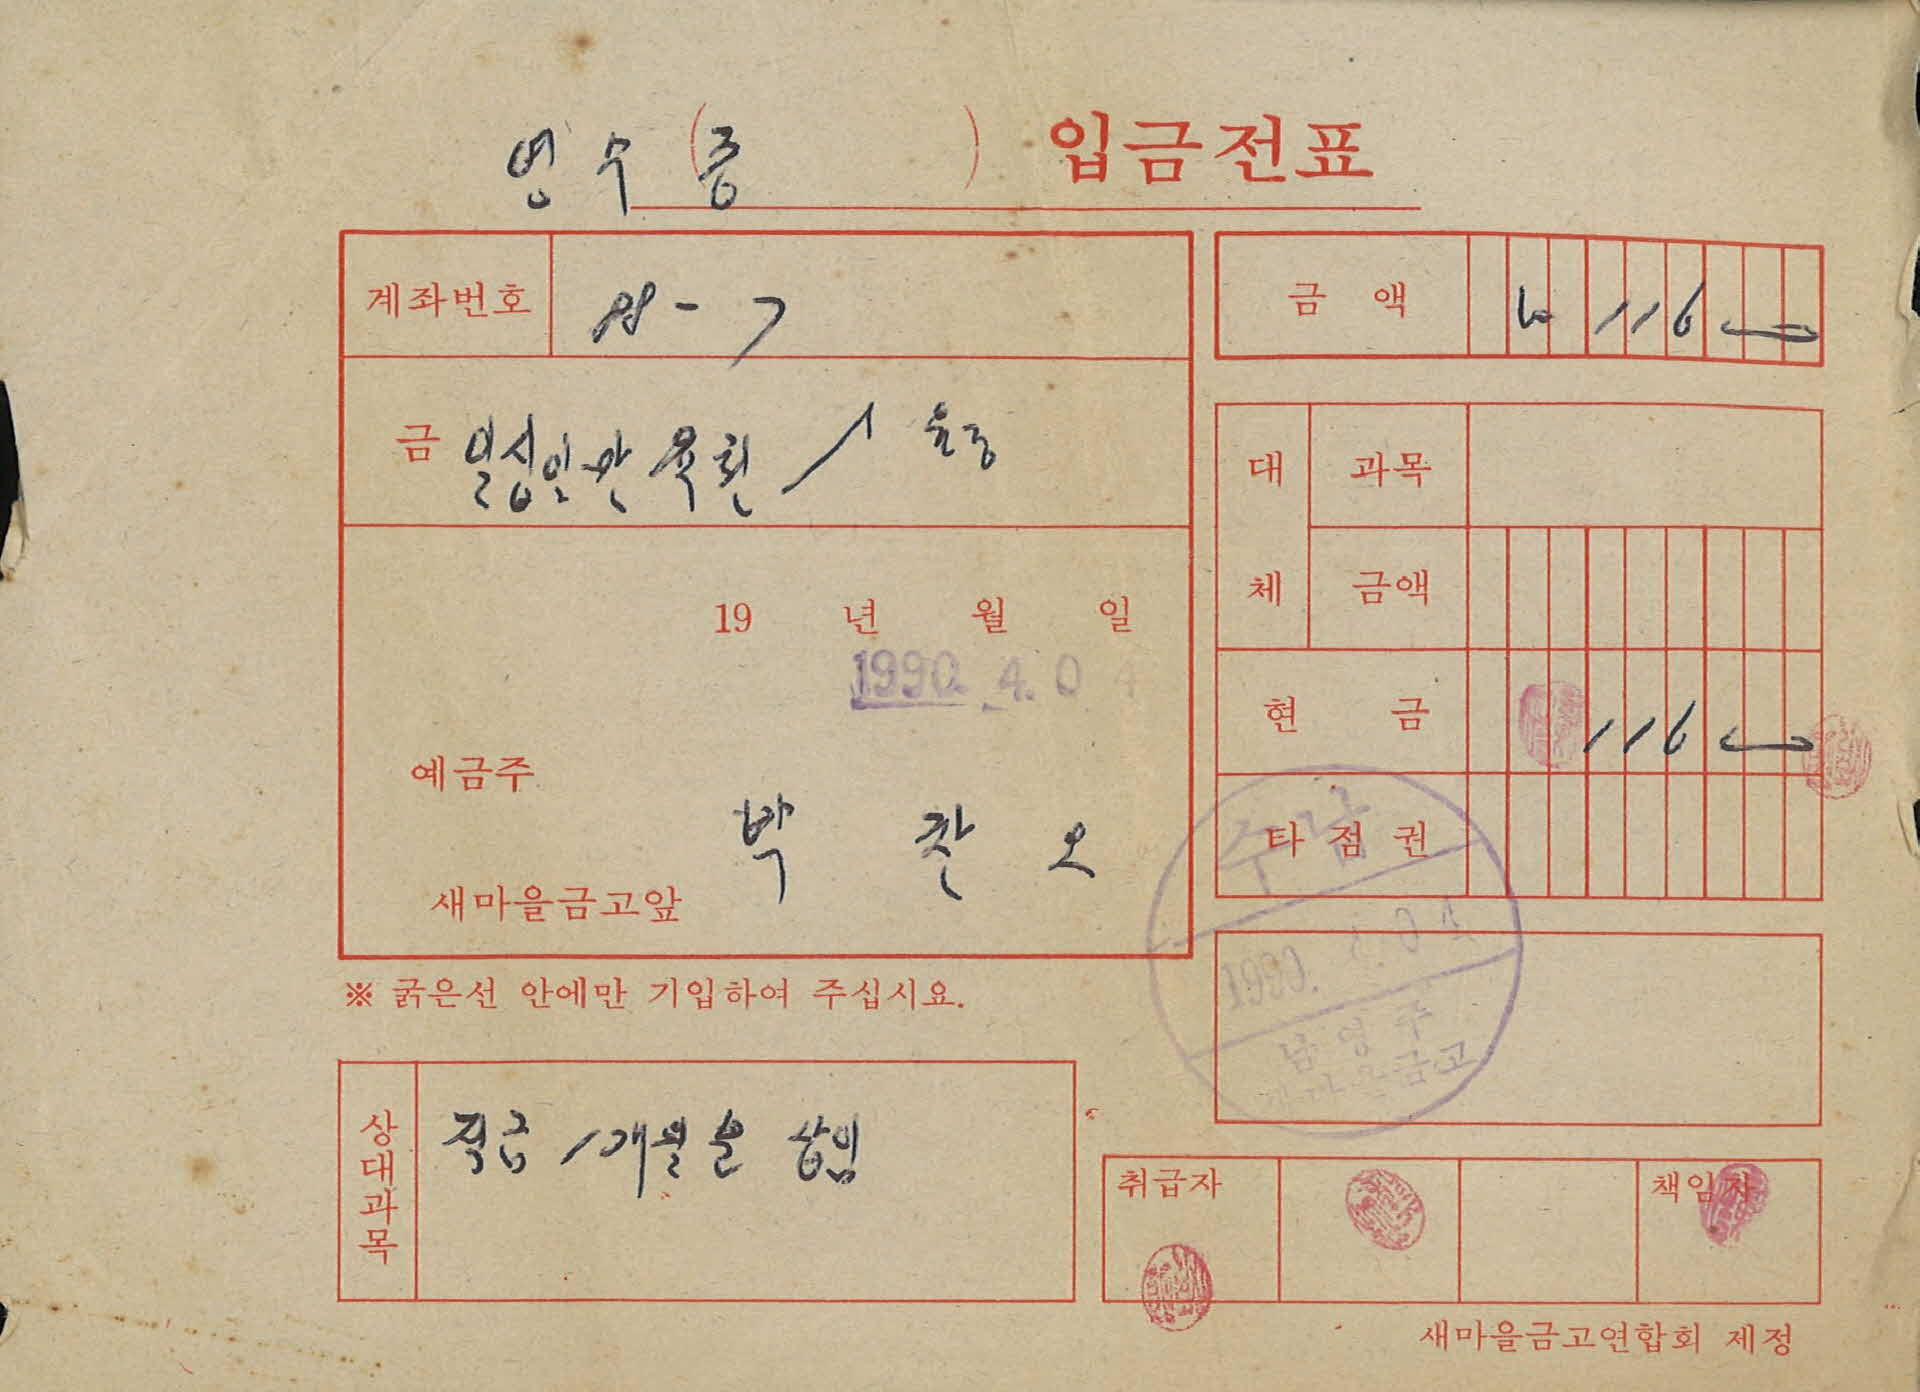 영수(증 ) 입금전표
계좌번호 98-7
금액 ₩116,000
금 일십일만육천
19 년 월 일
1990. 4. 04
예금주
박찬오
새마을금고앞
※ 굵은선 안에만 기입하여 주십시요.
대체
과목
금액
현금 116,000
타점권
수납
1990. 4. 04
남영주
새마을금고
상대과목
적금 1개월분 삽입
취급자
책임자
새마을금고연합회 제정